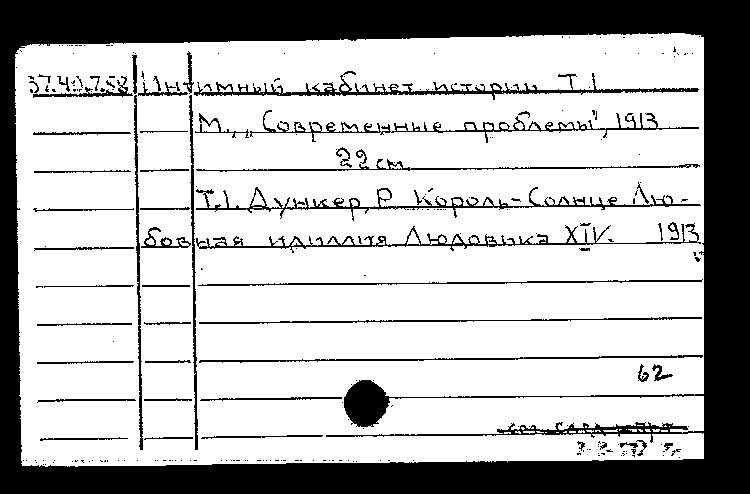 37.40.7.58 Интимный кабинет истории Т.1
М., „Современные проблемы", 1913
22 см.
Т.1. Дункер, Р. Король-Солнце Лю-
бовная идиллия Людовика XIV. 1913
62